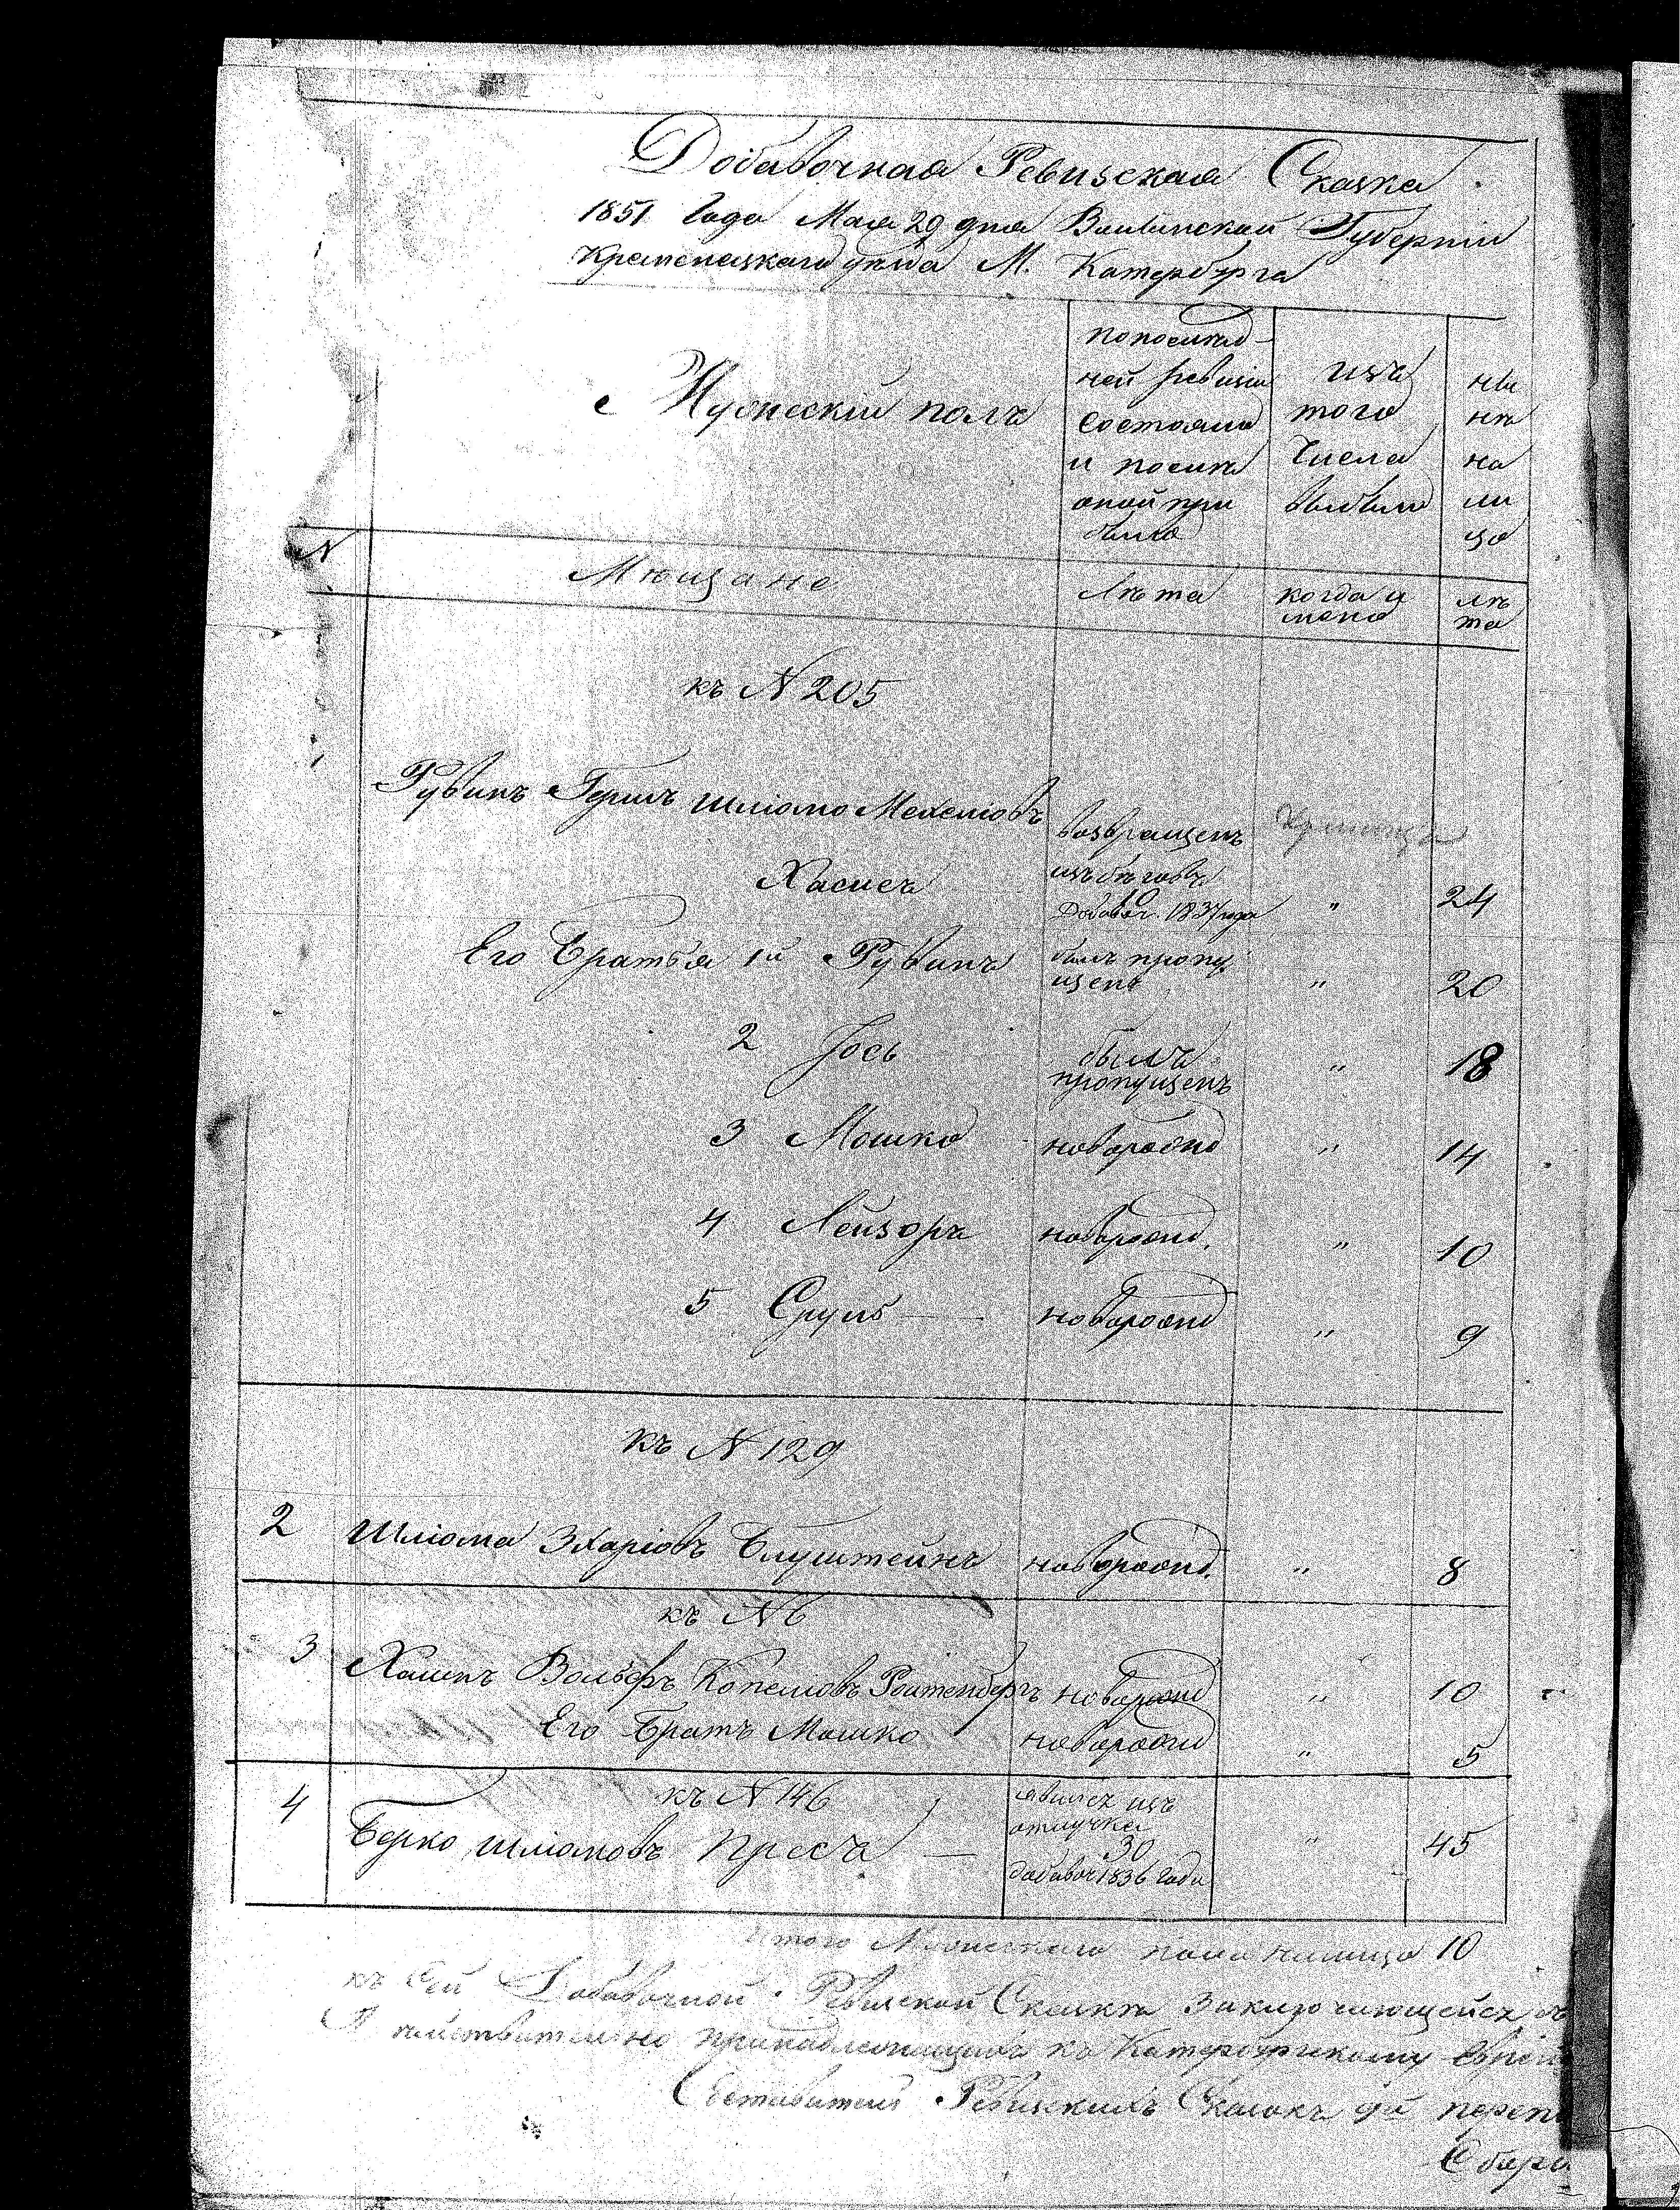 Добавочная Ревизская Сказка
1851 Года Мая 29 дня Волынской Губернии
Кременецкаго уезда М. Катербурга
Мужескій полъ
по послед-
ней ревизіи
состояло
и после
оной при
было
изъ
того
числа
выбыло
ны
нѣ
на
ли
цо
N
Мѣщане
Лѣта
когда и
менно
лѣ
та
къ N 205
Рувинъ Гершъ Шліомо Мехелювъ
возвращенъ
Хасисъ
изъ бѣговъ
10
Добавоч. 1837 года
"
24
Его Братья 1й Рувинъ
былъ пропу
щенъ
"
20
2 Іось
былъ
пропущенъ
"
18
3 Мошко
новорожд
"
14
4 Лейзоръ
новорожд.
"
10
5 Сруль
новорожд
"
9
къ N 129
2 Шліома Зхаріовъ Блуштейнъ новорожд. " 8
къ N 6
3 Хаимъ Вольфъ Копелювъ Ройтенбергъ новорожд " 10
Его Братъ Мошко новорожд " 5
4 къ N 146
Берко Шліомовъ Пресъ
явился изъ
отлучки
30
добавоч 1836 года
"
45
Итого Мужескаго пола налицо 10
къ Сей Добавочной Ревизской Сказкѣ заключающейся
действительно принадлежащихъ къ Катербургскому Еврей
Составитель Ревизскихъ Сказокъ 9й переп
Сбор